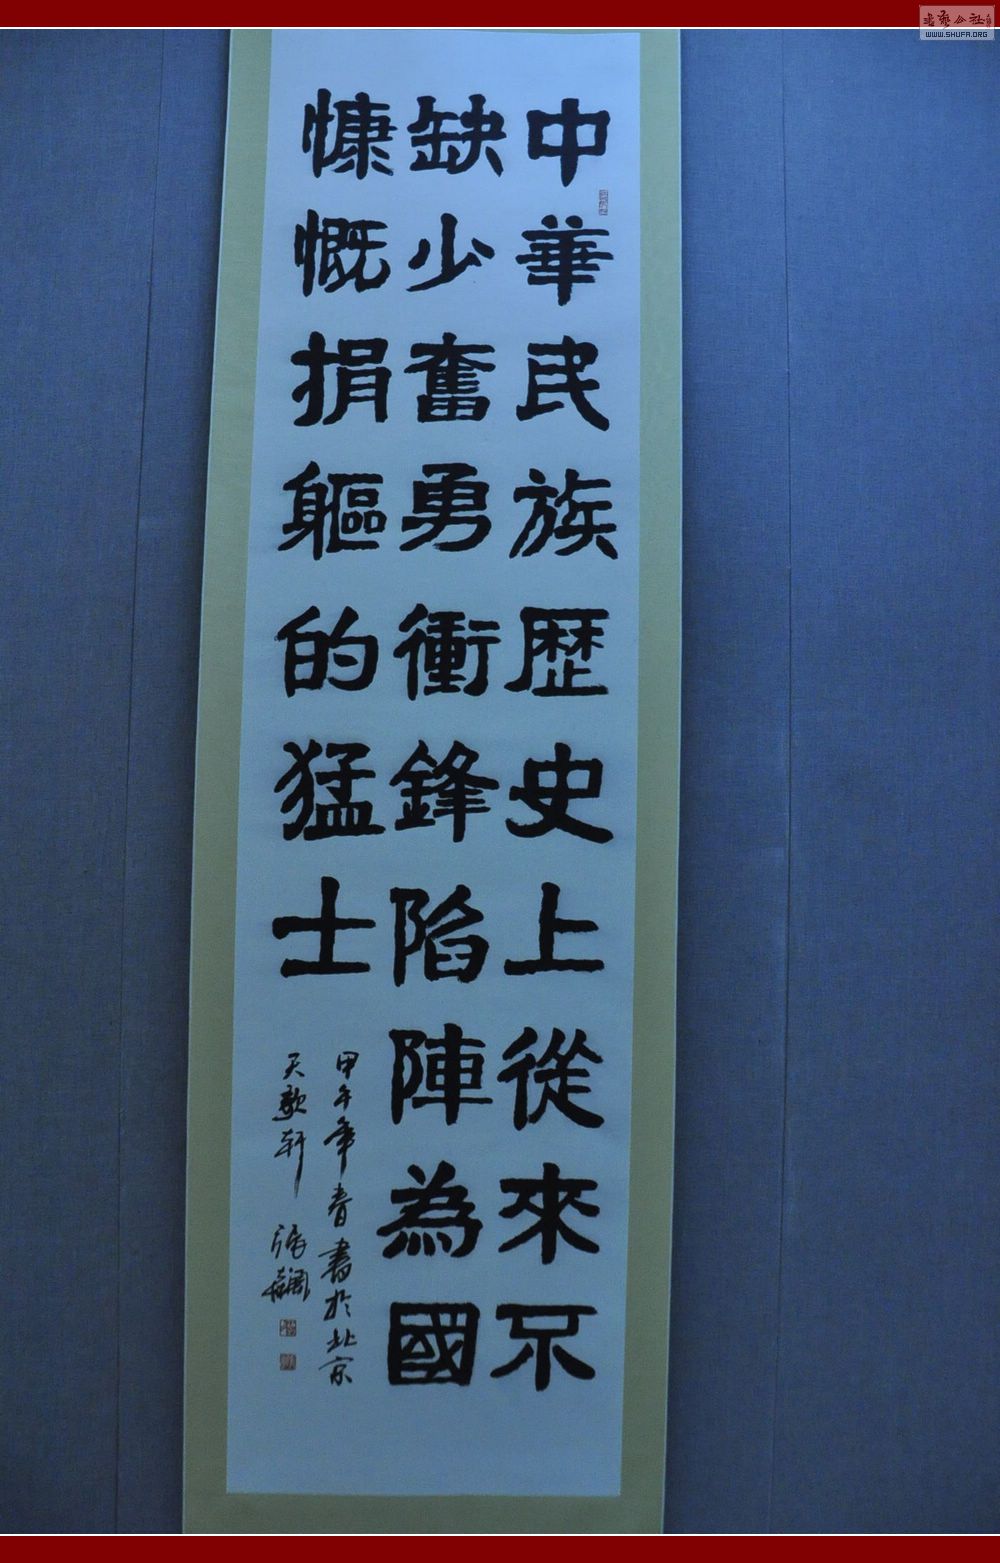 中華民族歷史上從來不
缺少奮勇衝鋒陷陣為國
慷慨捐軀的猛士
甲午年春書於北京
天歌軒
WWW.SHUFA.ORG